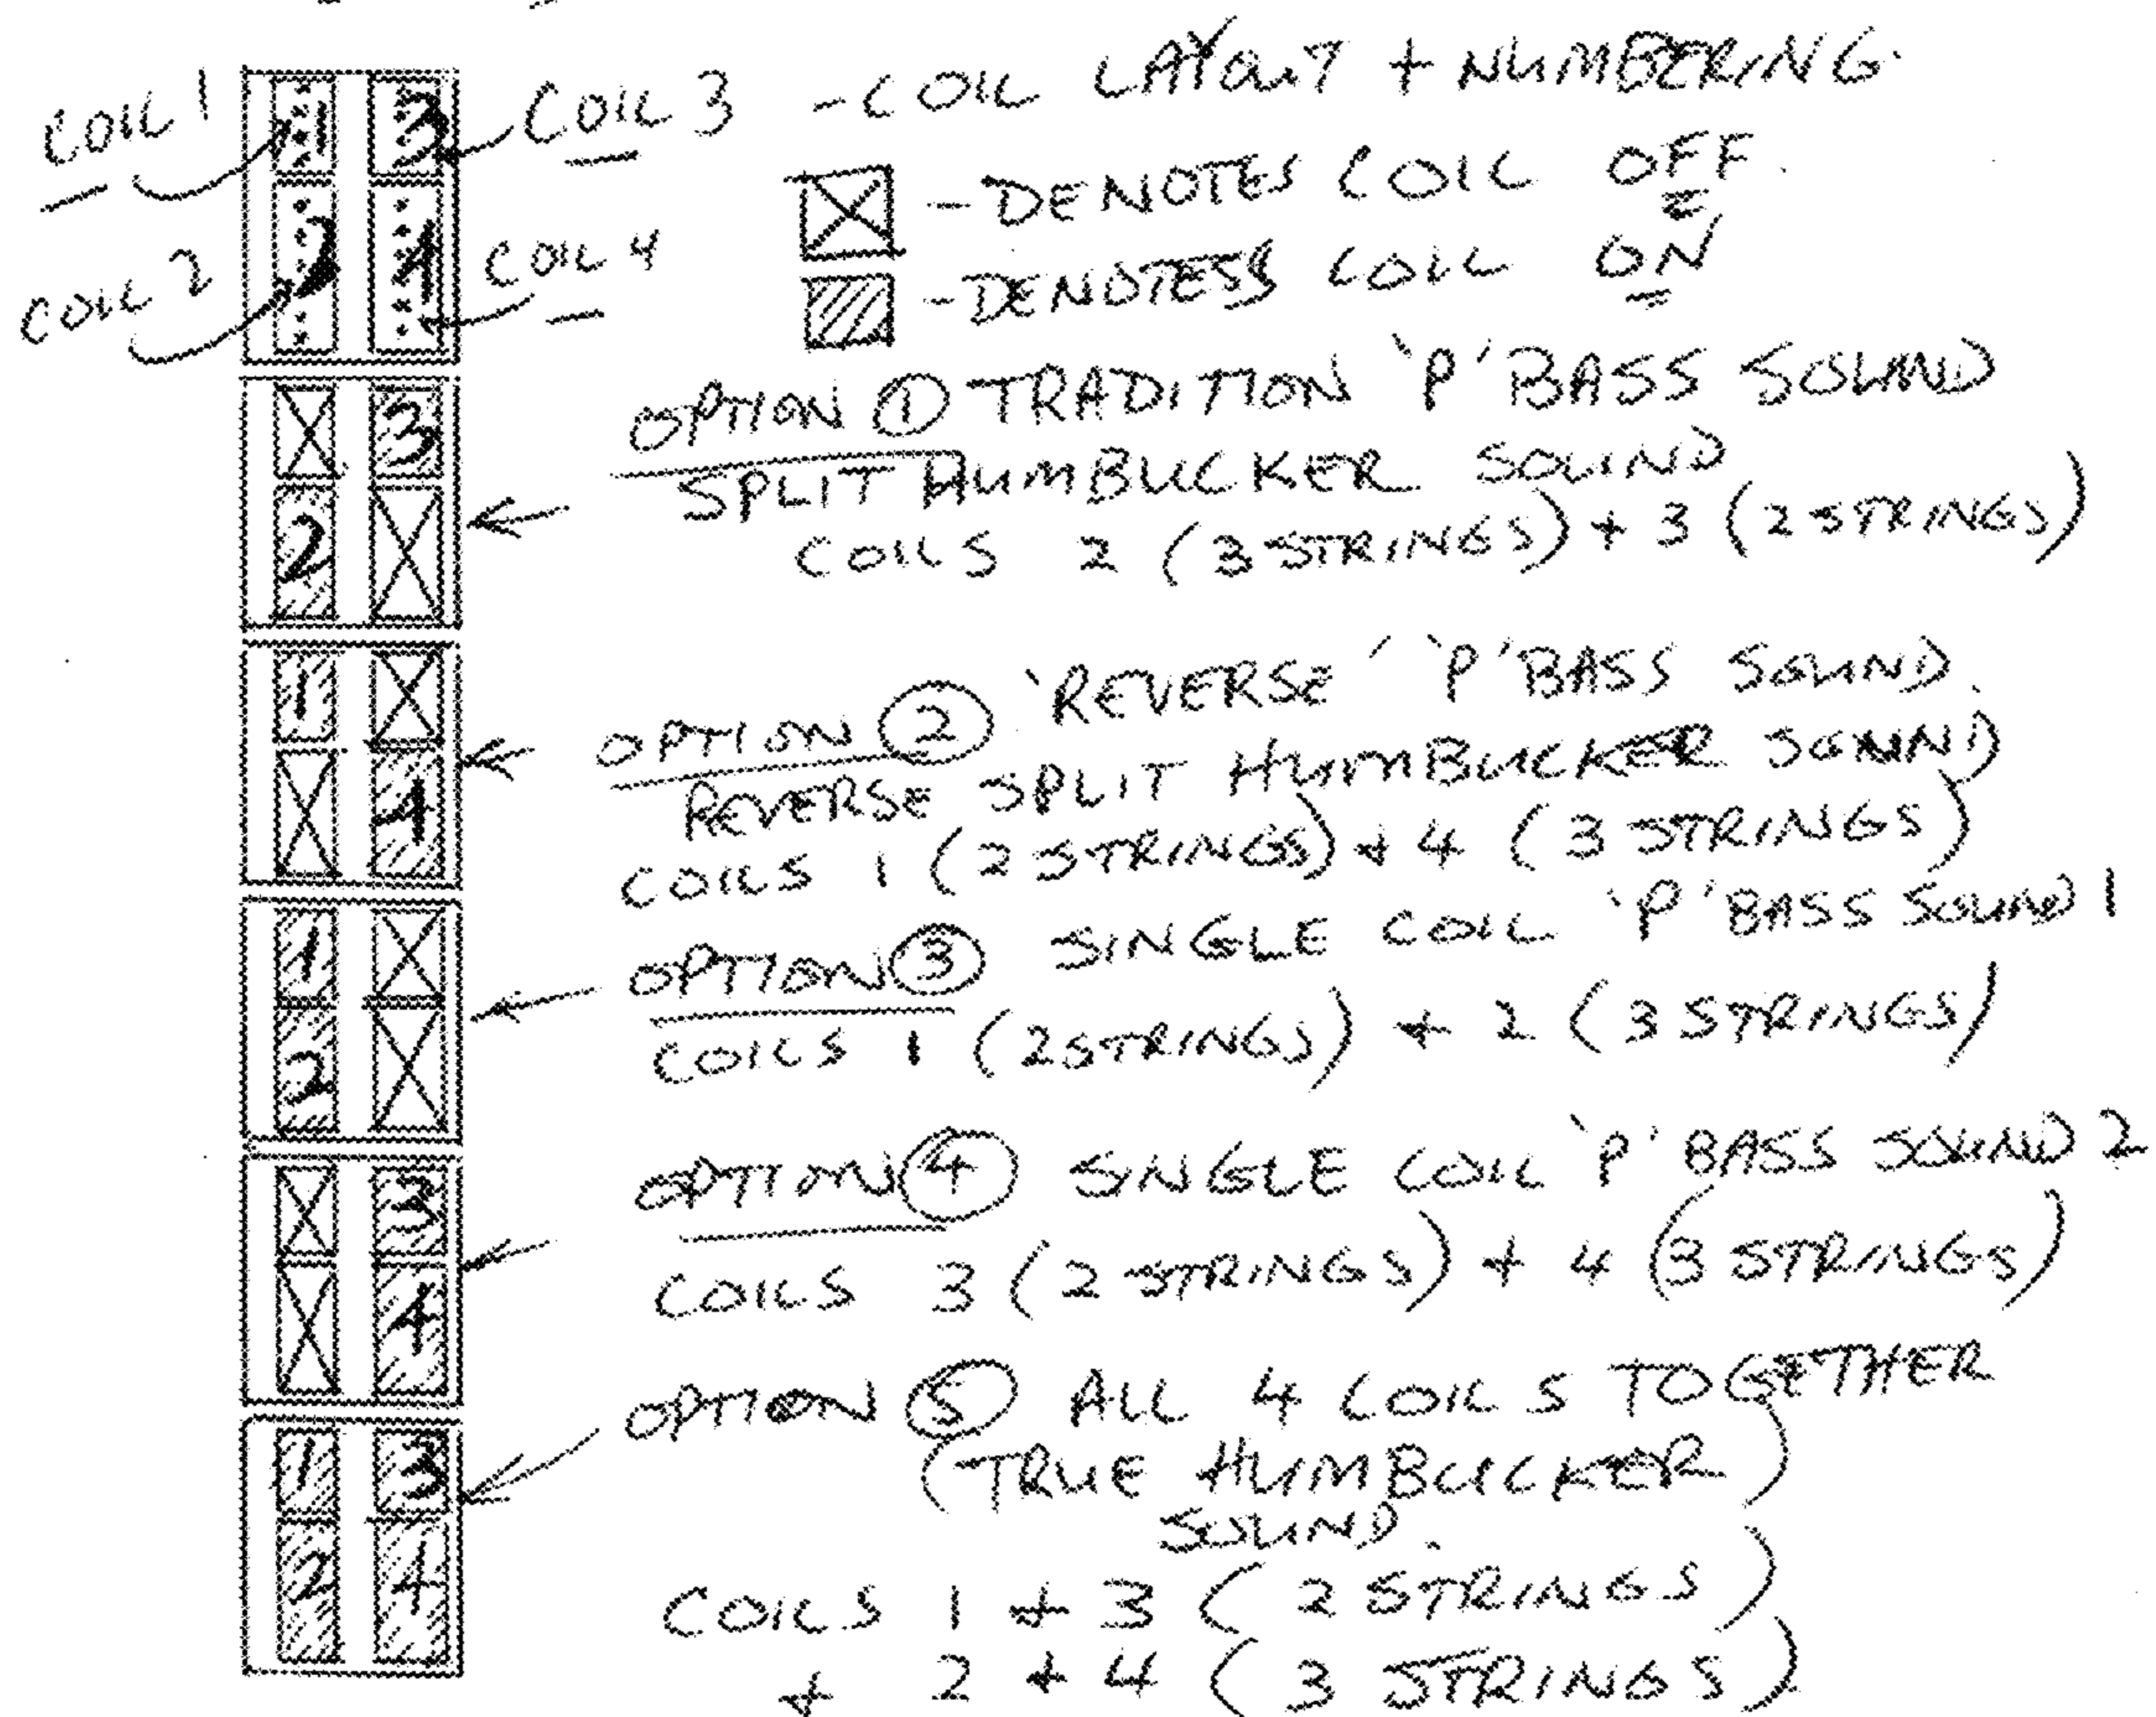 COIL 1
COIL 3 - COIL LAYOUT + NUMBERING.
1 3
- DENOTES COIL OFF.
COIL 2
2 4
COIL 4
- DENOTESS COIL ON
OPTION 1 TRADITION 'P' BASS SOUND
3
SPLIT HUMBUCKER SOUND
2
COILS 2 (3 STRINGS) + 3 (2 STRINGS)
1
OPTION 2 'REVERSE' 'P' BASS SOUND.
4
REVERSE SPLIT HUMBUCKER SOUND
COILS 1 (2 STRINGS) + 4 (3 STRINGS)
1
OPTION 3 SINGLE COIL 'P' BASS SOUND 1
2
COILS 1 (2 STRINGS) + 2 (3 STRINGS)
3
OPTION 4 SINGLE COIL 'P' BASS SOUND 2
4
COILS 3 (2 STRINGS) + 4 (3 STRINGS)
OPTION 5 ALL 4 COILS TOGETHER
1 3
(TRUE HUMBUCKER)
SOUND.
2 4
COILS 1 + 3 (2 STRINGS)
+ 2 + 4 (3 STRINGS)